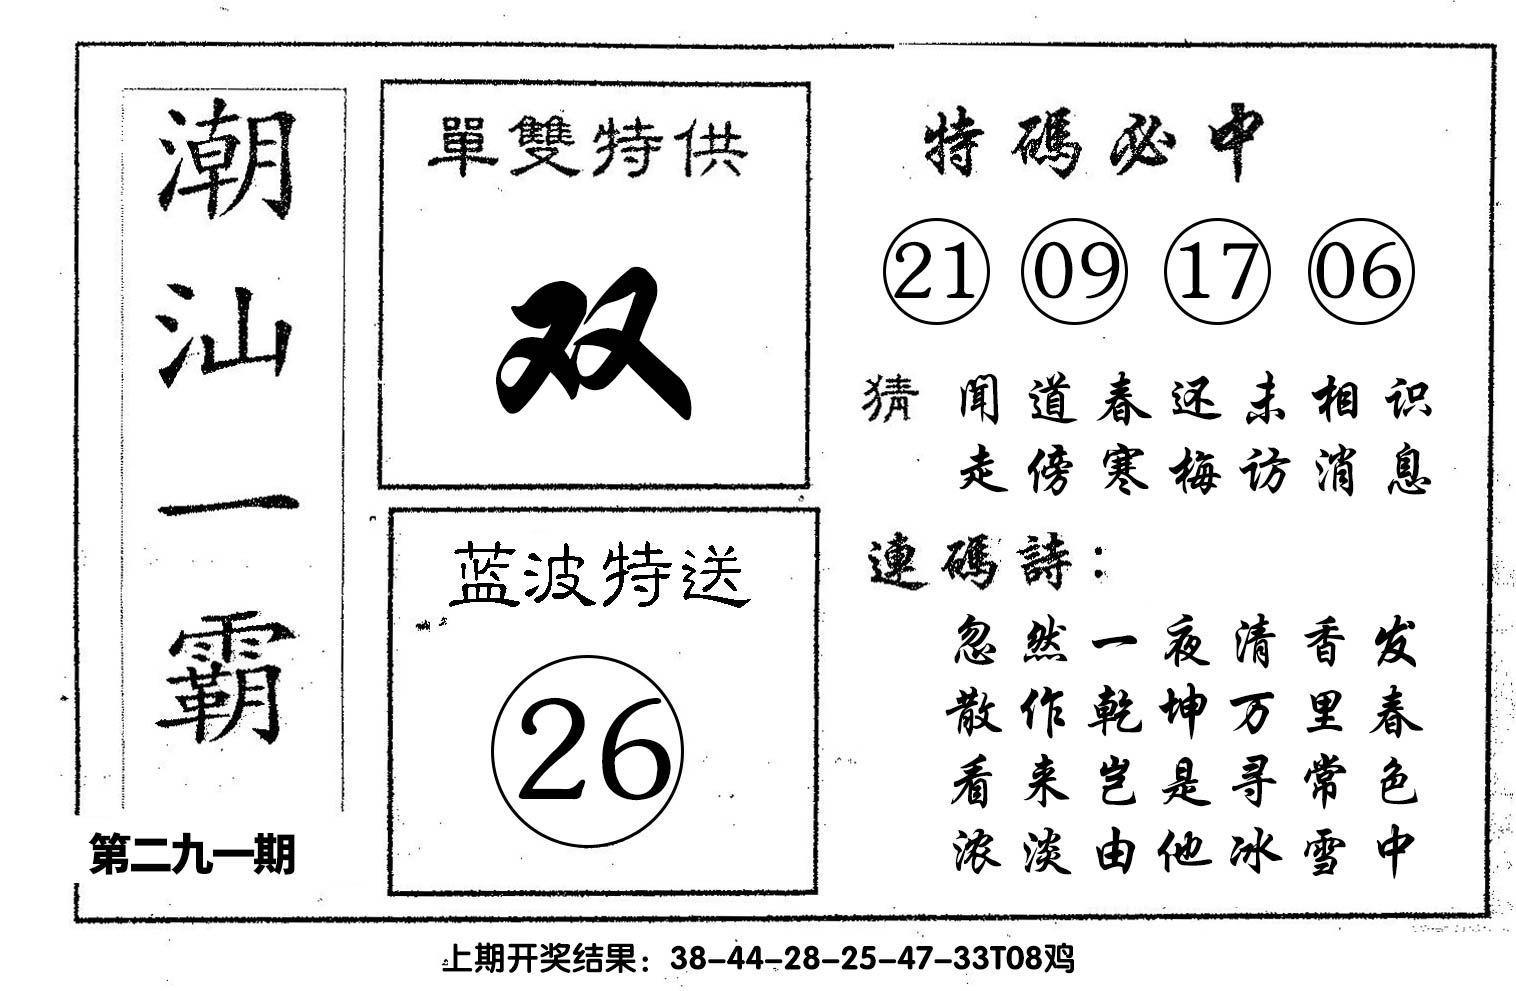 潮汕一霸
第二九一期
單雙特供
双
蓝波特送
26
特碼必中
21 09 17 06
猜 闻道春还未相识
走傍寒梅访消息
連碼詩：
忽然一夜清香发
散作乾坤万里春
看来岂是寻常色
浓淡由他冰雪中
上期开奖结果：38-44-28-25-47-33T08鸡